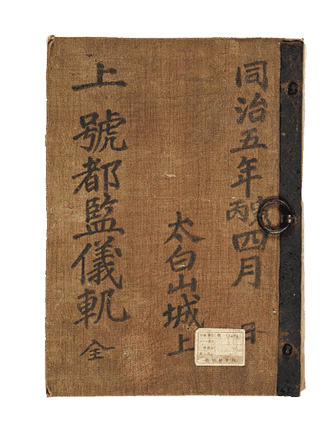 同治五年丙寅四月 日
太白山城上
上號都監儀軌 全